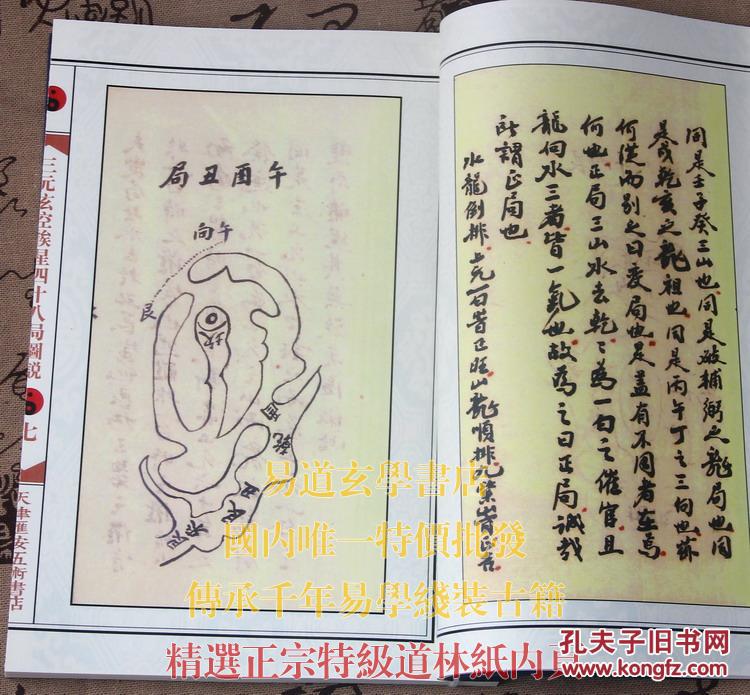 同是壬子癸三山也同是破輔弼之龍局也同
是戌乾亥之龍祖也同是丙午丁之三向也
何從而別之曰變局也是蓋有不同者在焉
何也正局三山水去乾乾為一白之催官且
龍向水三者皆一氣也故為之曰正局誠哉
所謂正局也
水龍倒排
一白皆正旺山龍順排九紫皆正
午酉丑局
午向
艮
坎
乾
三元玄空挨星四十八局圖説
七
天津匯安五術書店
易道玄學書店
國内唯一特價批發
傳承千年易學綫装古籍
精選正宗特級道林紙内頁
孔夫子旧书网
www.kongfz.com